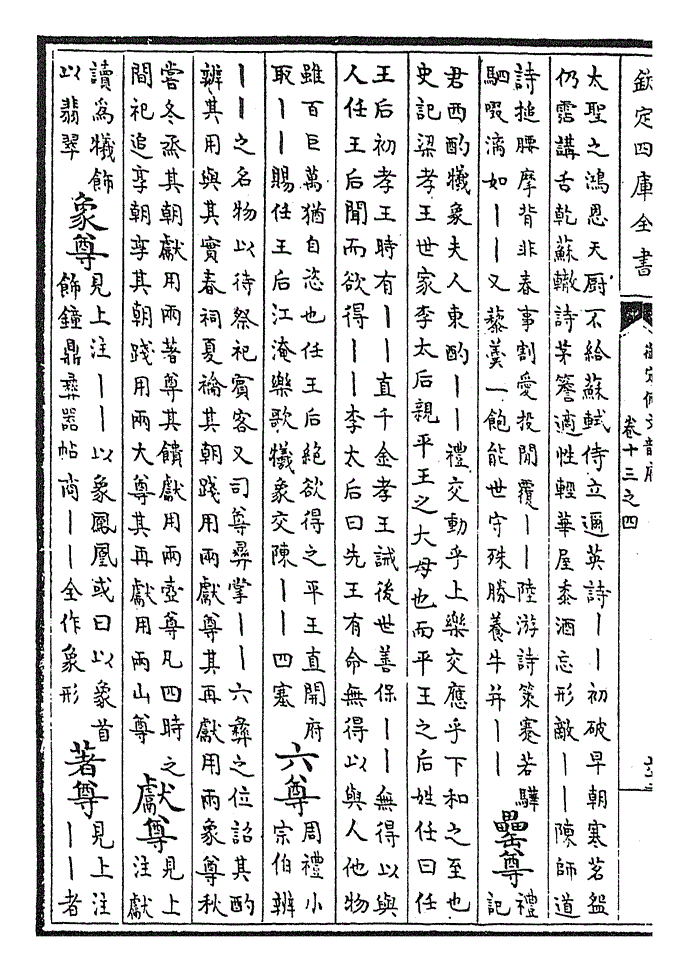 欽定四庫全書
御定佩文韻府
卷十三之四
太聖之鴻恩天厨不給蘇軾侍立邇英詩丨丨初破早朝寒茗盌
仍霑講舌乾蘇轍詩茅簷適性輕華屋黍酒忘形敵丨丨陳師道
詩搥腰摩背非春事割愛投閒覆丨丨陸游詩策蹇若驊
駟啜漓如丨丨又藜羹一飽能世守殊勝養牛并丨丨
罍尊
禮
記
君西酌犧象夫人東酌丨丨禮交動乎上樂交應乎下和之至也
史記梁孝王世家李太后親平王之大母也而平王之后姓任曰任
王后初孝王時有丨丨直千金孝王誡後世善保丨丨無得以與
人任王后聞而欲得丨丨李太后曰先王有命無得以與人他物
雖百巨萬猶自恣也任王后絶欲得之平王直開府
取丨丨賜任王后江淹樂歌犧象交陳丨丨四塞
六尊
周禮小
宗伯辨
丨丨之名物以待祭祀賓客又司尊彝掌丨丨六彝之位詔其酌
辨其用與其實春祠夏禴其朝踐用兩獻尊其再獻用兩象尊秋
嘗冬烝其朝獻用兩著尊其饋獻用兩壺尊凡四時之
間祀追享朝享其朝踐用兩大尊其再獻用兩山尊
獻尊
見上
注獻
讀為犧飾
以翡翠
象尊
見上注丨丨以象鳳凰或曰以象首
飾鐘鼎彝器帖商丨丨全作象形
著尊
見上注
丨丨者